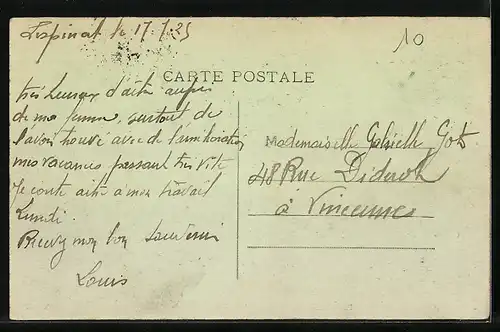 Lespinat le 17.7.25
10
CARTE POSTALE
très heureux d'être auprès
de ma femme, surtout de
l'avoir trouvé avec de l'amélioration
mes vacances passant très vite
Je conte être a mon travail
Lundi.
Recevez mon bon souvenir
Louis
Mademoiselle Gabrielle Got
48 Rue Diderot
à Vincennes